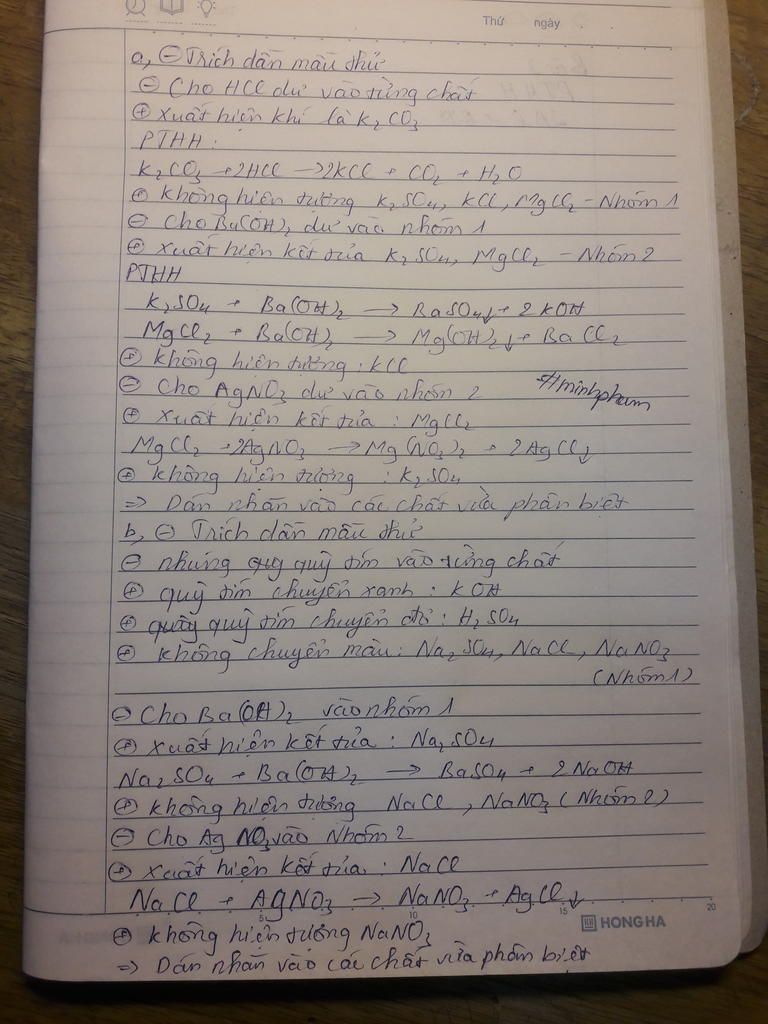 Thứ ngày
a, ⊖ Trích dẫn mẫu thử
⊖ Cho HCl dư vào từng chất
⊕ Xuất hiện khí là K₂CO₃
PTHH:
K₂CO₃ + 2HCl → 2KCl + CO₂ + H₂O
⊕ không hiện tượng K₂SO₄, KCl, MgCl₂ - Nhóm 1
⊖ Cho Ba(OH)₂ dư vào nhóm 1
⊕ Xuất hiện kết tủa K₂SO₄, MgCl₂ - Nhóm 2
PTHH
K₂SO₄ + Ba(OH)₂ → BaSO₄↓ + 2KOH
MgCl₂ + Ba(OH)₂ → Mg(OH)₂↓ + BaCl₂
⊕ không hiện tượng : KCl
⊖ Cho AgNO₃ dư vào nhóm 2
#minhpham
⊕ Xuất hiện kết tủa : MgCl₂
MgCl₂ + 2AgNO₃ → Mg(NO₃)₂ + 2AgCl↓
⊕ không hiện tượng : K₂SO₄
=> Dán nhãn vào các chất vừa phân biệt
b, ⊖ Trích dẫn mẫu thử
⊖ nhúng quỳ tím vào từng chất
⊕ quỳ tím chuyển xanh : KOH
⊕ quỳ tím chuyển đỏ : H₂SO₄
⊕ không chuyển màu: Na₂SO₄, NaCl, NaNO₃
(Nhóm 1)
⊖ Cho Ba(OH)₂ vào nhóm 1
⊕ xuất hiện kết tủa : Na₂SO₄
Na₂SO₄ + Ba(OH)₂ → BaSO₄ + 2NaOH
⊕ không hiện tượng NaCl, NaNO₃ (Nhóm 2)
⊖ Cho AgNO₃ vào Nhóm 2
⊕ xuất hiện kết tủa : NaCl
NaCl + AgNO₃ → NaNO₃ + AgCl↓
5 10 15 20
HONG HA
⊕ không hiện tượng NaNO₃
=> Dán nhãn vào các chất vừa phân biệt